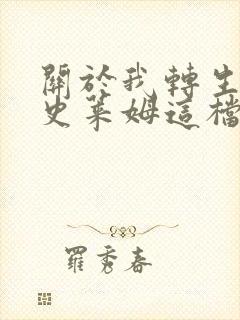 關於我轉生
史萊姆這檔
羅秀春